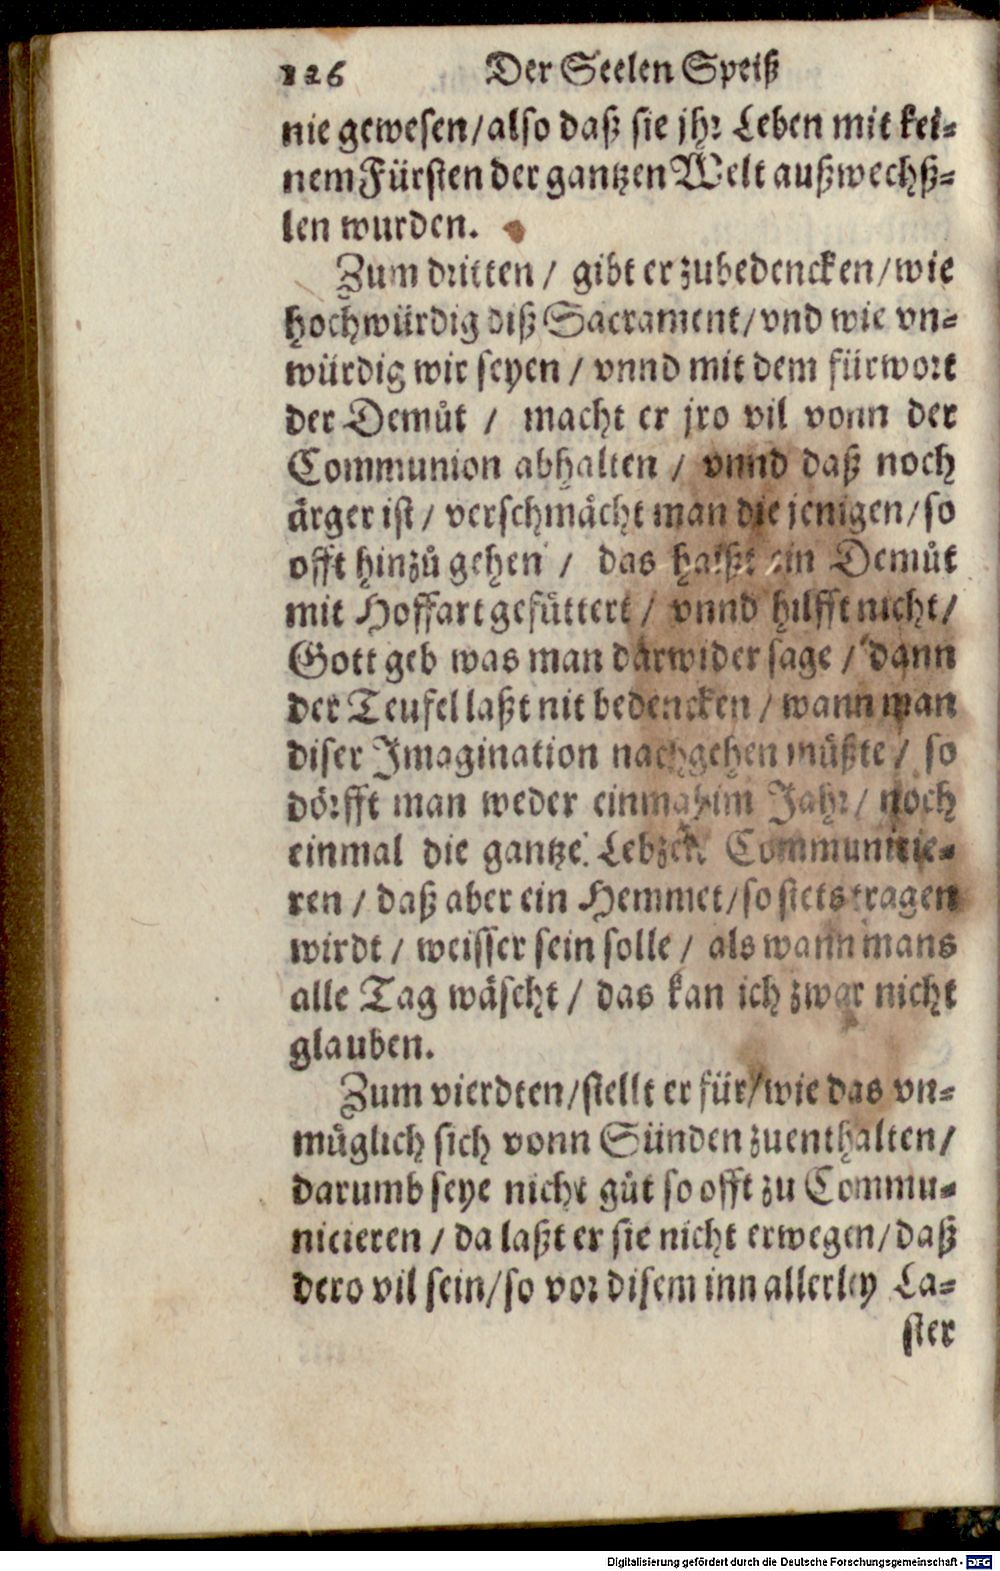 126 Der Seelen Speiß
nie gewesen/also daß sie jhr Leben mit kei-
nem Fürsten der gantzen Welt außwechß-
len wurden.
Zum dritten / gibt er zubedencken/wie
hochwürdig diß Sacrament/vnd wie vn-
würdig wir seyen / vnnd mit dem fürwort
der Demůt / macht er jro vil vonn der
Communion abhalten / vnnd daß noch
ärger ist / verschmächt man die jenigen/so
offt hinzů gehen / das haißt ein Demůt
mit Hoffart gefüttert / vnnd hilfft nicht/
Gott geb was man darwider sage / dann
der Teufel laßt nit bedencken / wann man
diser Imagination nachgehen müßte / so
dörfft man weder einmal im Jahr / noch
einmal die gantze Lebzeit Communicie-
ren / daß aber ein Hemmet/so stets tragen
wirdt / weisser sein solle / als wann mans
alle Tag wäscht / das kan ich zwar nicht
glauben.
Zum vierdten/stellt er für/wie das vn-
müglich sich vonn Sünden zuenthalten/
darumb seye nicht gůt so offt zu Commu-
nicieren / da laßt er sie nicht erwegen/daß
dero vil sein/so vor disem inn allerley La-
ster
Digitalisierung gefördert durch die Deutsche Forschungsgemeinschaft - DFG